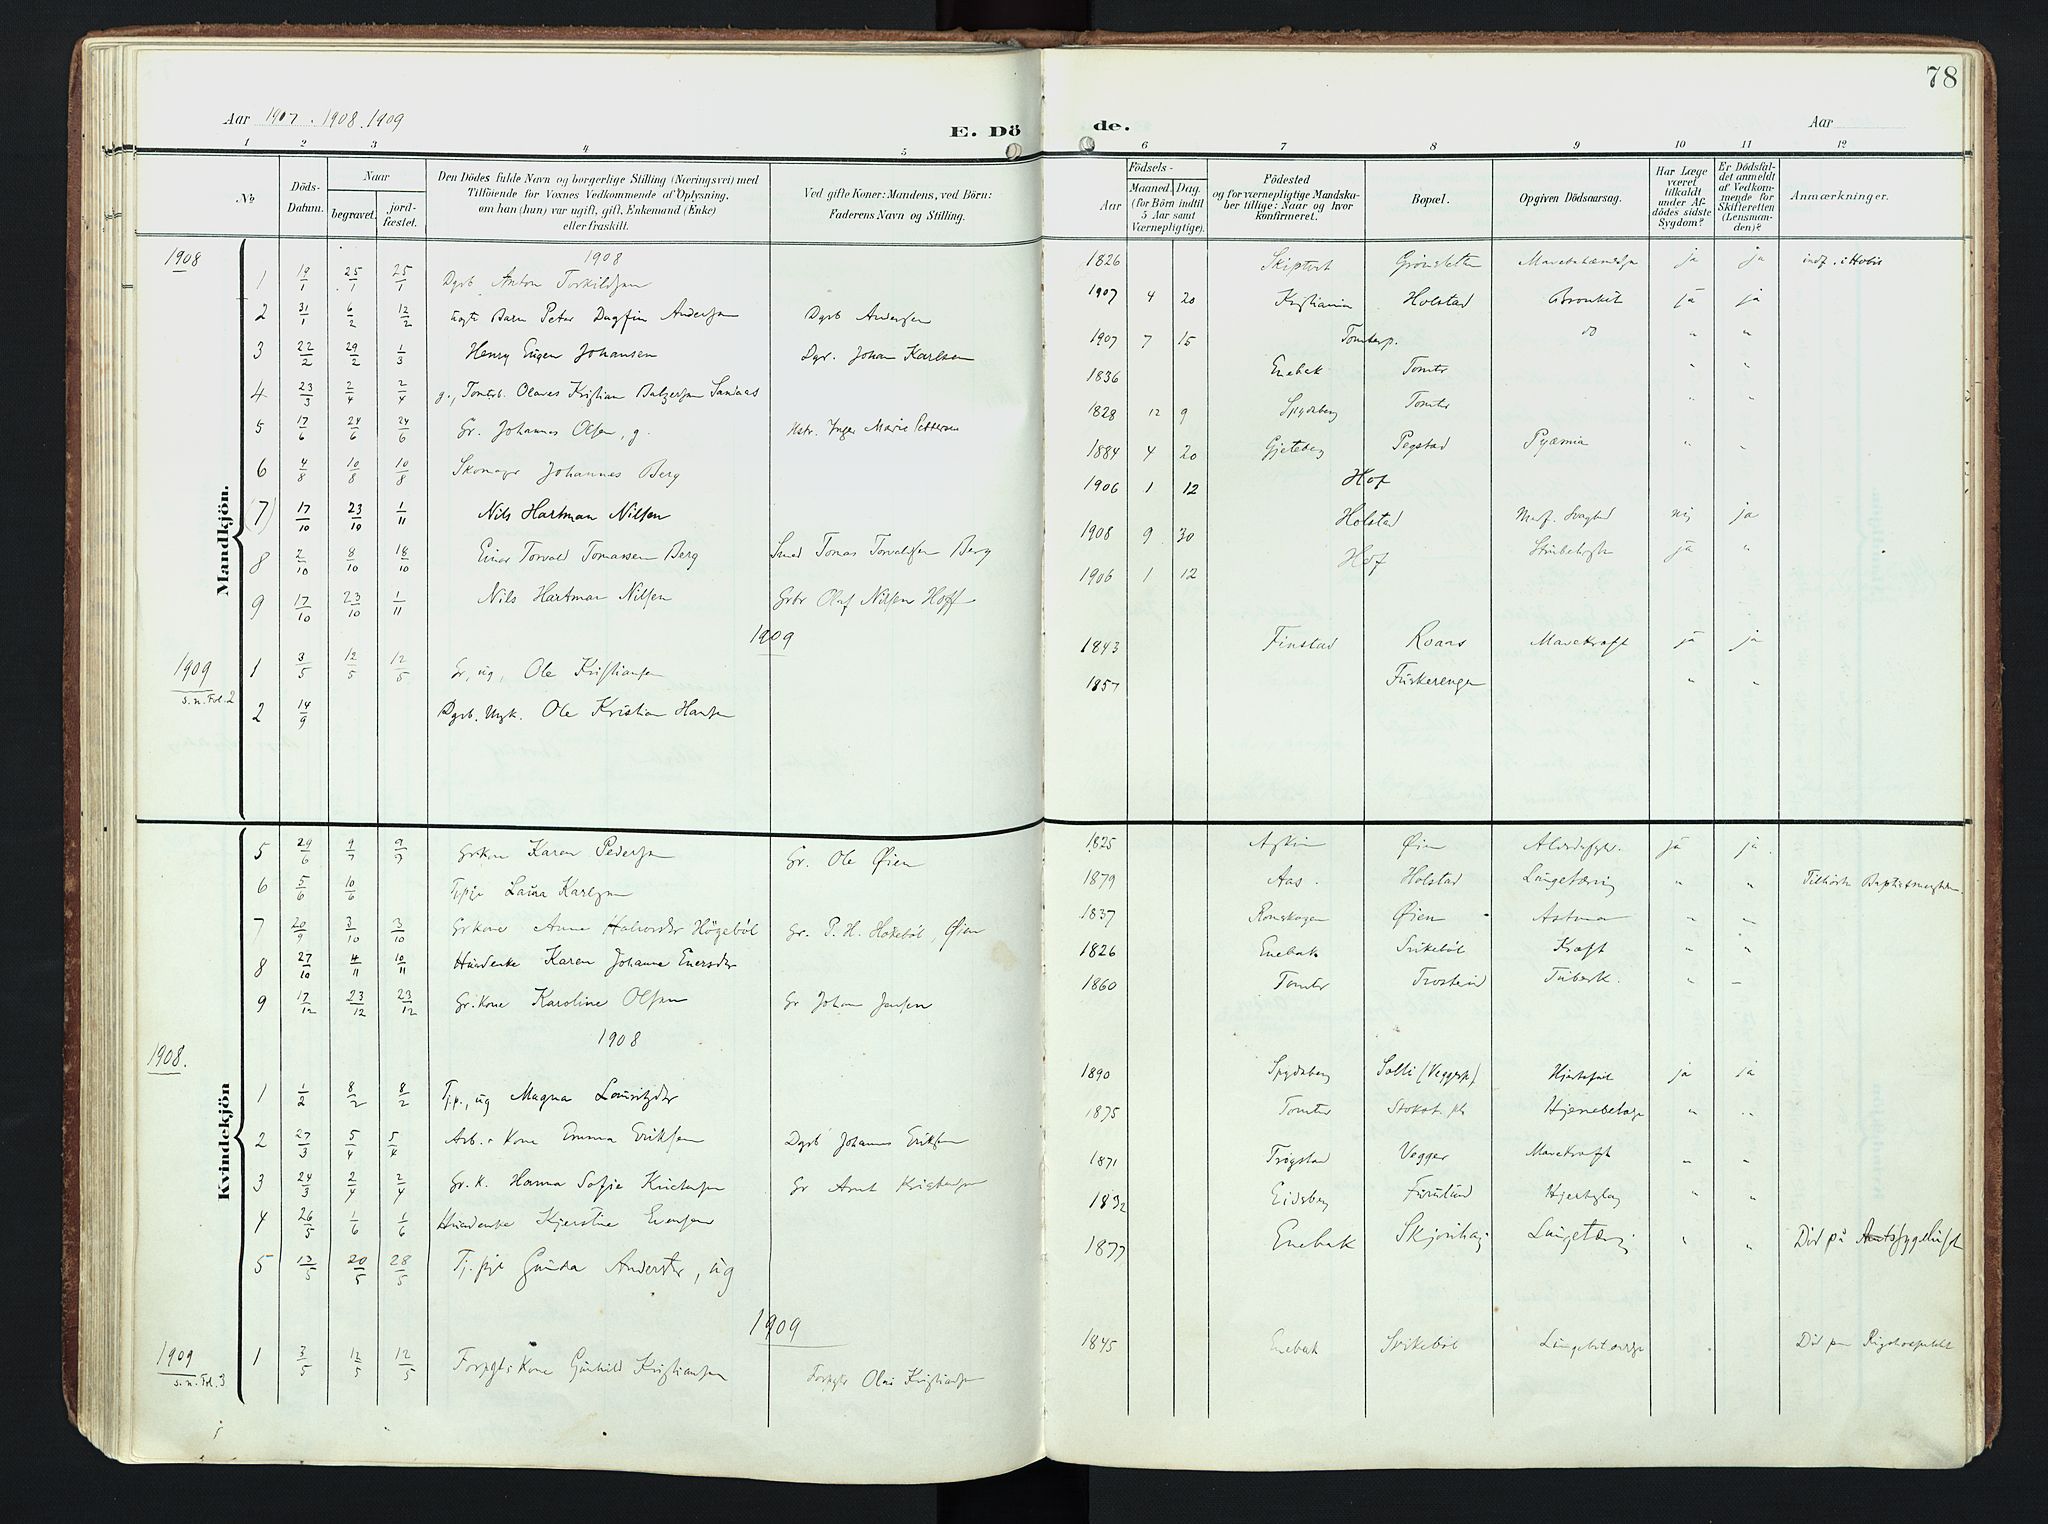 78
Aar 1907. 1908. 1909
E. Dö de.
Aar
1 2 3 4 5 6 7 8 9 10 11 12
No
Döds-Datum.
Naar
begravet.
jord-fæstet.
Den Dödes fulde Navn og borgerlige Stilling (Næringsvei) med
Tilföiende for Voxnes Vedkommende af Oplysning,
om han (hun) var ugift, gift, Enkemand (Enke)
eller fraskilt.
Ved gifte Koner: Mandens, ved Börn:
Faderens Navn og Stilling.
Födsels-
Aar
Maaned. Dag.
(for Börn indtil
5 Aar samt
Værnepligtige).
Födested
og for værnepligtige Mandska-
ber tillige: Naar og hvor
konfirmeret.
Bopæl.
Opgiven Dödsaarsag.
Har Læge
været
tilkaldt
under Af-
dödes sidste
Sygdom?
Er Dödsfal-
det anmeldt
af Vedkom-
mende for
Skifteretten
(Lensman-
den)?
Anmærkninger.
Mandkjön.
1908
1908
1 19/1 25/1 25/1 Dgrb Anton Torkildsen 1826 Skiptvet ja ja
2 31/1 6/2 12/2 Barn Peter Dagfin Andersen Dgrb Andersen 1907 4 20 Kristiania Holstad Bronkit ja ja
3 22/2 29/2 1/3 Henry Eugen Johansen Dgr. Johan Karlsen 1907 7 15 Tomterp. do " "
4 23/3 2/4 2/4 g., Tomtrb. Olaves Kristian Balzersen Sanaas 1836 Enebak Tomter " "
5 17/6 24/6 24/6 Gr. Johannes Olsen, g. Hstr. Inger Marie Pettersen 1828 12 9 Spydeberg Tomter " "
6 4/8 10/8 10/8 Skomager Johannes Berg 1884 4 20 Pegstad Pyæmia " "
(7) 17/10 23/10 1/11 Nils Hartman Nilsen 1906 1 12 Hof
8 2/10 8/10 18/10 Einar Torvald Tomassen Berg Smed Tomas Torvaldsen Berg 1908 9 30 Holstad Medf. Svaghed nej ja
9 17/10 23/10 1/11 Nils Hartman Nilsen Grbr Olaf Nilsen Hoff 1906 1 12 Hof Strubehoste ja "
1909
1909
s. n. Fol. 2
1 3/5 12/5 12/5 Gr, ug, Ole Kristiansen 1843 Finstad Roaas Mavekraft ja ja
2 14/9 Dgrb. Ungk. Ole Kristian Hansen 1857 Fuskerengen " "
Kvindekjön
5 29/6 9/7 9/7 Grkone Karen Pedersen Gr. Ole Øien 1825 Askim Øien ja ja.
6 5/6 10/6 Tjpje Laura Karlsen 1879 Aas. Holstad Lungetæring " "
7 20/9 3/10 3/10 Grkone Anne Halvorsdtr Högebøl Gr. P. H. Høkebøl, Øien 1837 Romskogen Øien Astma " "
8 27/10 4/11 10/11 Huusenke Karen Johanne Enersdtr 1826 Enebak Svikebøl Kræft " "
9 17/12 23/12 23/12 Gr.kone Karoline Olsen Gr Johan Jensen 1860 Tomter Trostein Tuberk. " "
1908
1908.
1 1/2 8/2 8/2 Tj.p., ug Magna Louritzdtr 1890 Spydeberg Solli (Veggersp) Hjertefeil ja ja
2 27/3 5/4 5/4 Arb.s Kone Emma Eriksen Dgrb Johannes Eriksen 1875 Tomter " "
3 24/3 2/4 2/4 Gr. K. Hanna Sofie Kristensen Gr Arnt Kristensen 1871 Trøgstad Vegger Mavekraft " "
4 26/5 1/6 1/6 Huusenke Kjerstine Evensen 1832 Eidsberg Furulund " "
5 13/5 20/5 28/5 Tj.pje Gunda Andersdtr, ug 1877 Enebak Skjønhaug Lungetæring " " Død på Amtssygehuset
1909
1909
s. n. Fol. 3
1 3/5 12/5 12/5 Forpgts Kone Gunhild Kristiansen Forpgtr Olai Kristiansen 1845 Enebak Svikebøl Lungebetændelse Død paa Rigshospitalet